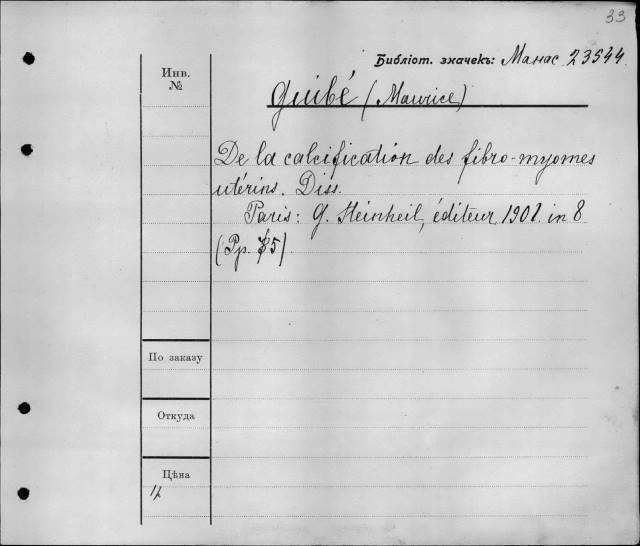 33
Библіот. значекъ: Манас. 23544
Инв.
№
Guibé (Maurice)
De la calcification des fibro-myomes
utérins. Diss.
Paris: G. Steinheil, éditeur, 1901. in 8
(Pp. 85)
По заказу
Откуда
Цѣна